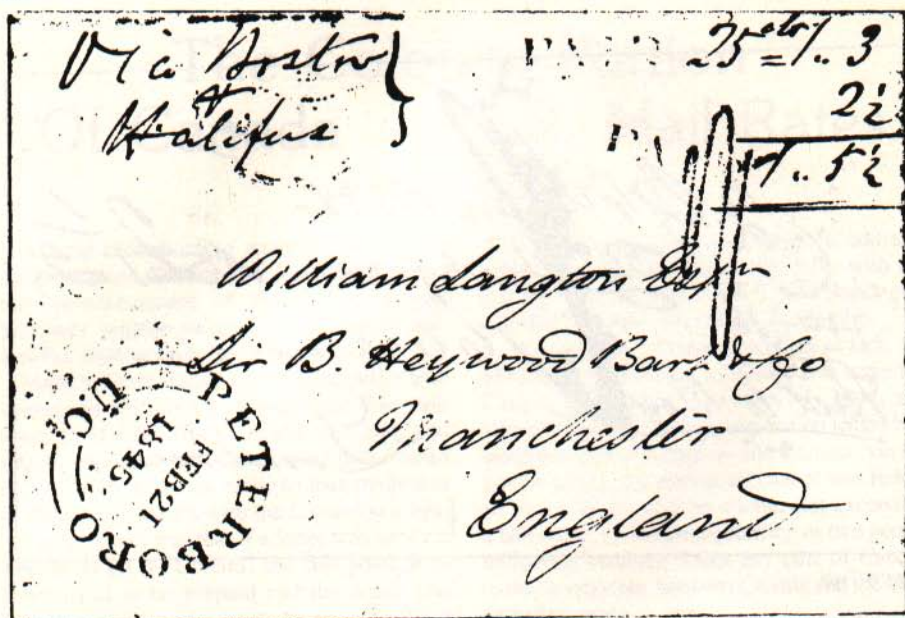 Via Boston
&
Halifax
25 cts 1.. 3
2½
1.. 5½
William Langton Esqr
Sir B. Heywood Bart & Co
Manchester
England
PETERBORO U.C.
FEB 21
1845